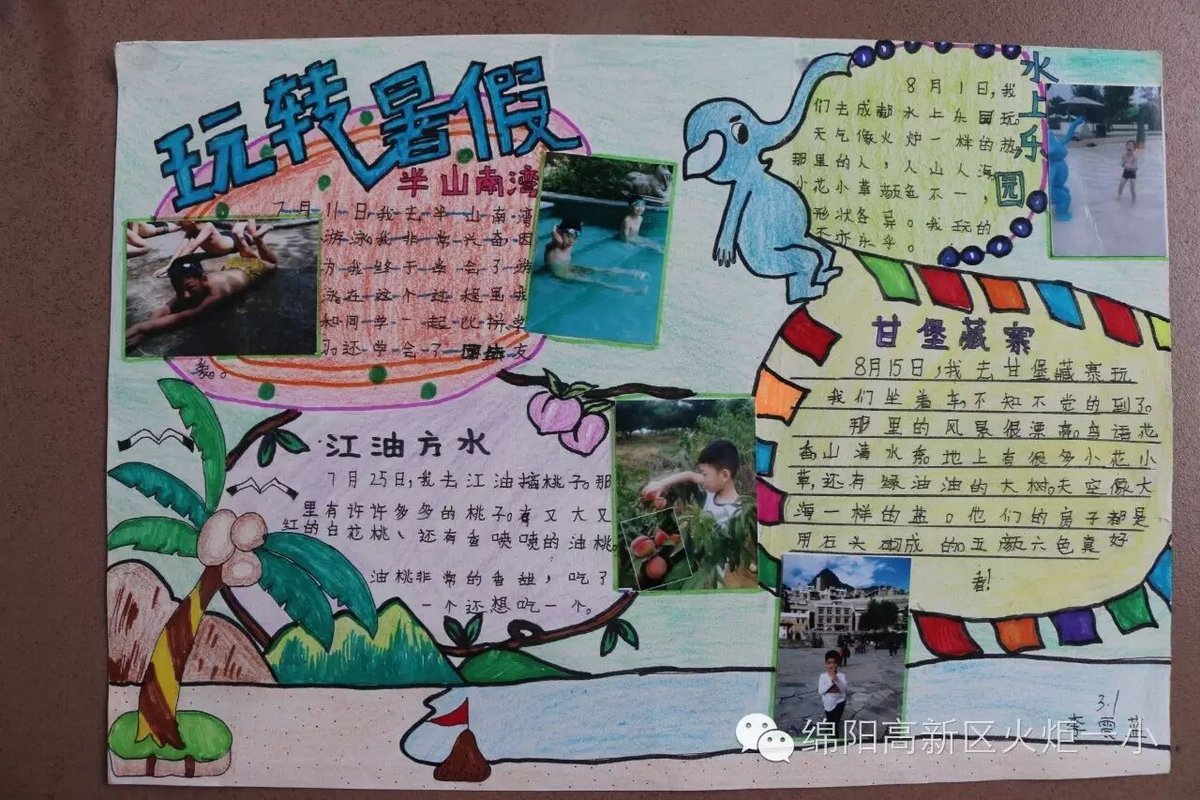 玩转暑假
半山南湾
7月11日我去半山南湾
游泳我非常兴奋因
为我终于学会了游
泳在这个过程里我
和同学一起比拼学
习还学会了团结友
爱。
江油方水
7月25日,我去江油摘桃子。那
里有许许多多的桃子。有又大又
红的白花桃、还有香喷喷的油桃。
油桃非常的香甜,吃了
一个还想吃一个。
水上乐园
8月1日,我
们去成都水上乐园玩。
天气像火炉一样的热
那里的人,人山人海
小花小草颜色不一,
形状各异。我玩的
不亦乐乎。
甘堡藏寨
8月15日,我去甘堡藏寨玩
我们坐着车,不知不觉的到了。
那里的风景很漂亮。鸟语花
香,山清水秀。地上有很多小花小
草,还有绿油油的大树。天空像大
海一样的蓝。他们的房子都是
用石头做成的。五颜六色真好
看!
3.1
绵阳高新区火炬一小